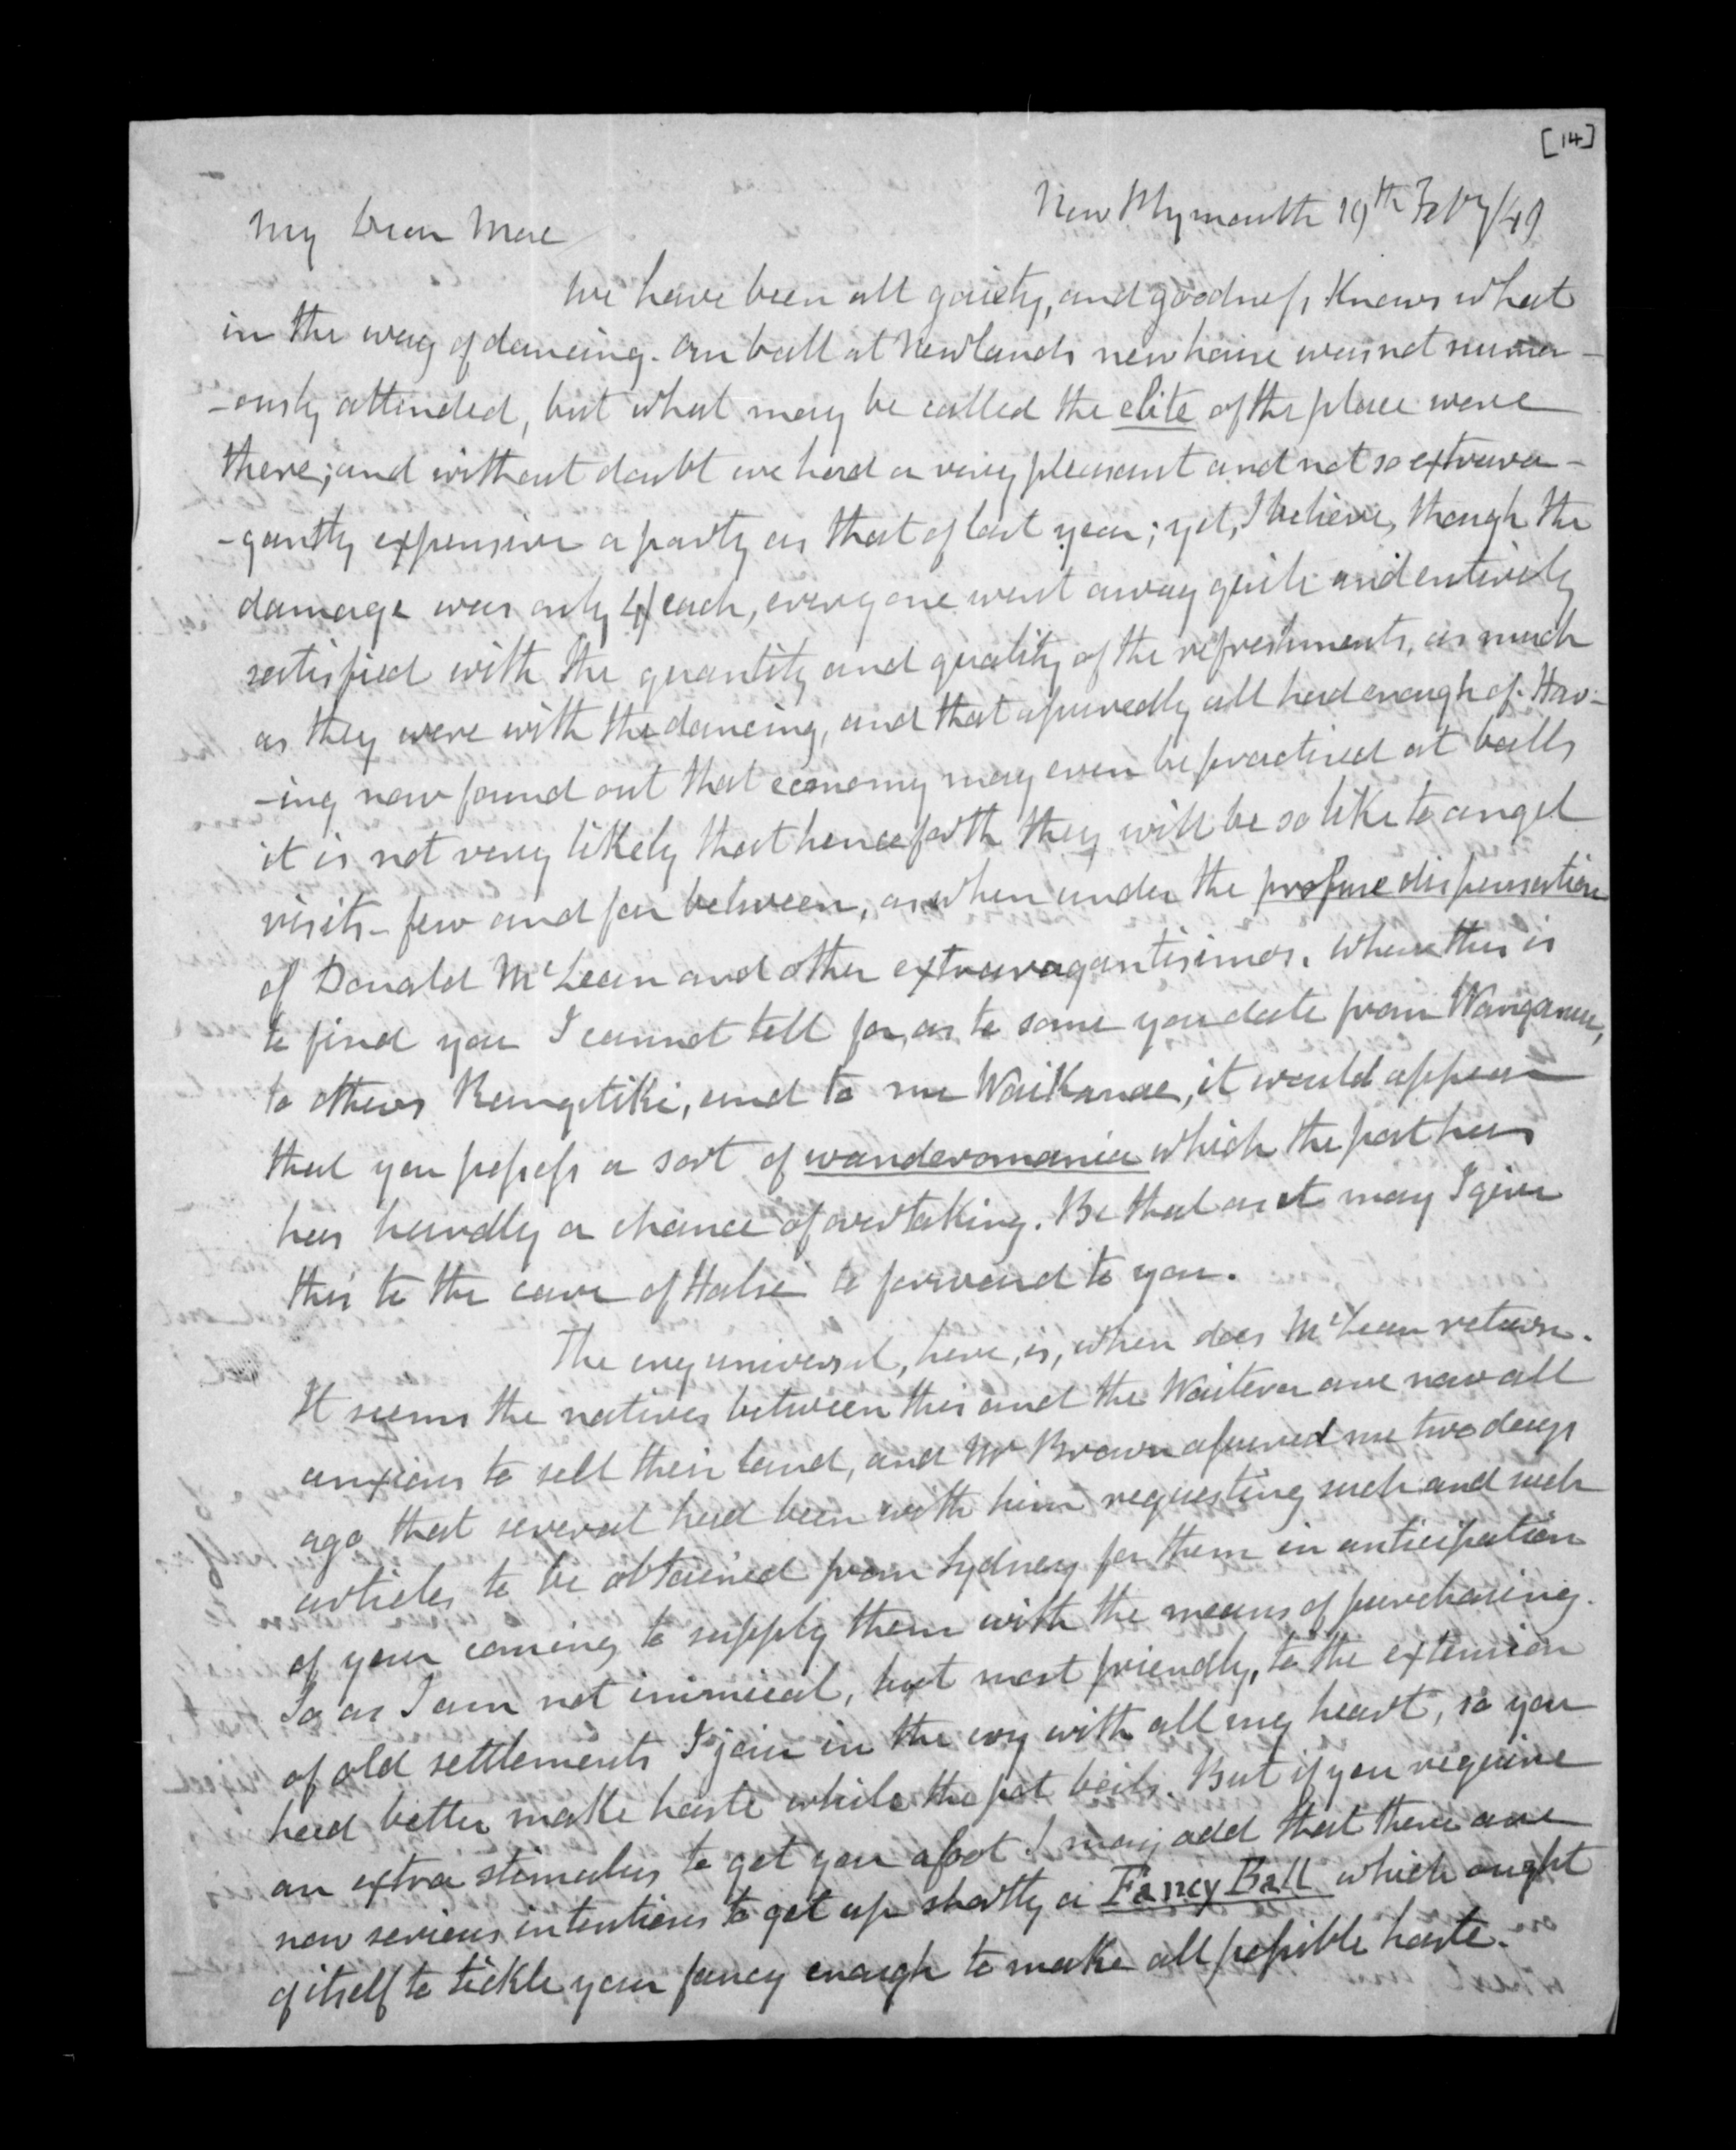 [14]
New Plymouth 19th Feby/49
My Dear Mac
We have been all gaiety, and goodness knows what
in the way of dancing. Our ball at Newlands new house was not numer-
-ously attended, but what may be called the elite of the place were
there; and without doubt we had a very pleasant and not so extrava-
-gantly expensive a party as that of last year; yet, I believe, though the
damage was only 4/ each, every one went away quite and entirely
satisfied with the quantity and quality of the refreshments, as much
as they were with the dancing, and that assuredly all had enough of. Hav-
-ing now found out that economy may even be practised at balls
it is not very likely that henceforth they will be so like to angel
visits - few and far between, as when under the profuse dispensation
of Donald McLean and other extravagantisimos. Where this is
to find you I cannot tell for, as to some you date from Wanganui,
to others Rangitiki, and to me Waikanae, it would appear
that you possess a sort of wanderomania which the post has
has hardly a chance of overtaking. Be that as it may I give
this to the care of Halse to forward to you.
The cry universal, here, is, when does McLean return.
It seems the natives between this and the Waitera are now all
anxious to sell their land, and Mr Brown assured me two days
ago that several had been with him requesting such and such
articles to be obtained from Sydney for them in anticipation
of your coming to supply them with the means of purchasing.
So as I am not inimical, but most friendly, to the extension
of old settlements I join in the cry with all my heart, so you
had better make haste while the pot boils. But if you require
an extra stimulus to get you afoot I may add that there are
now serious intentions to get up shortly a Fancy Ball which ought
of itself to tickle your fancy enough to make all possible haste.